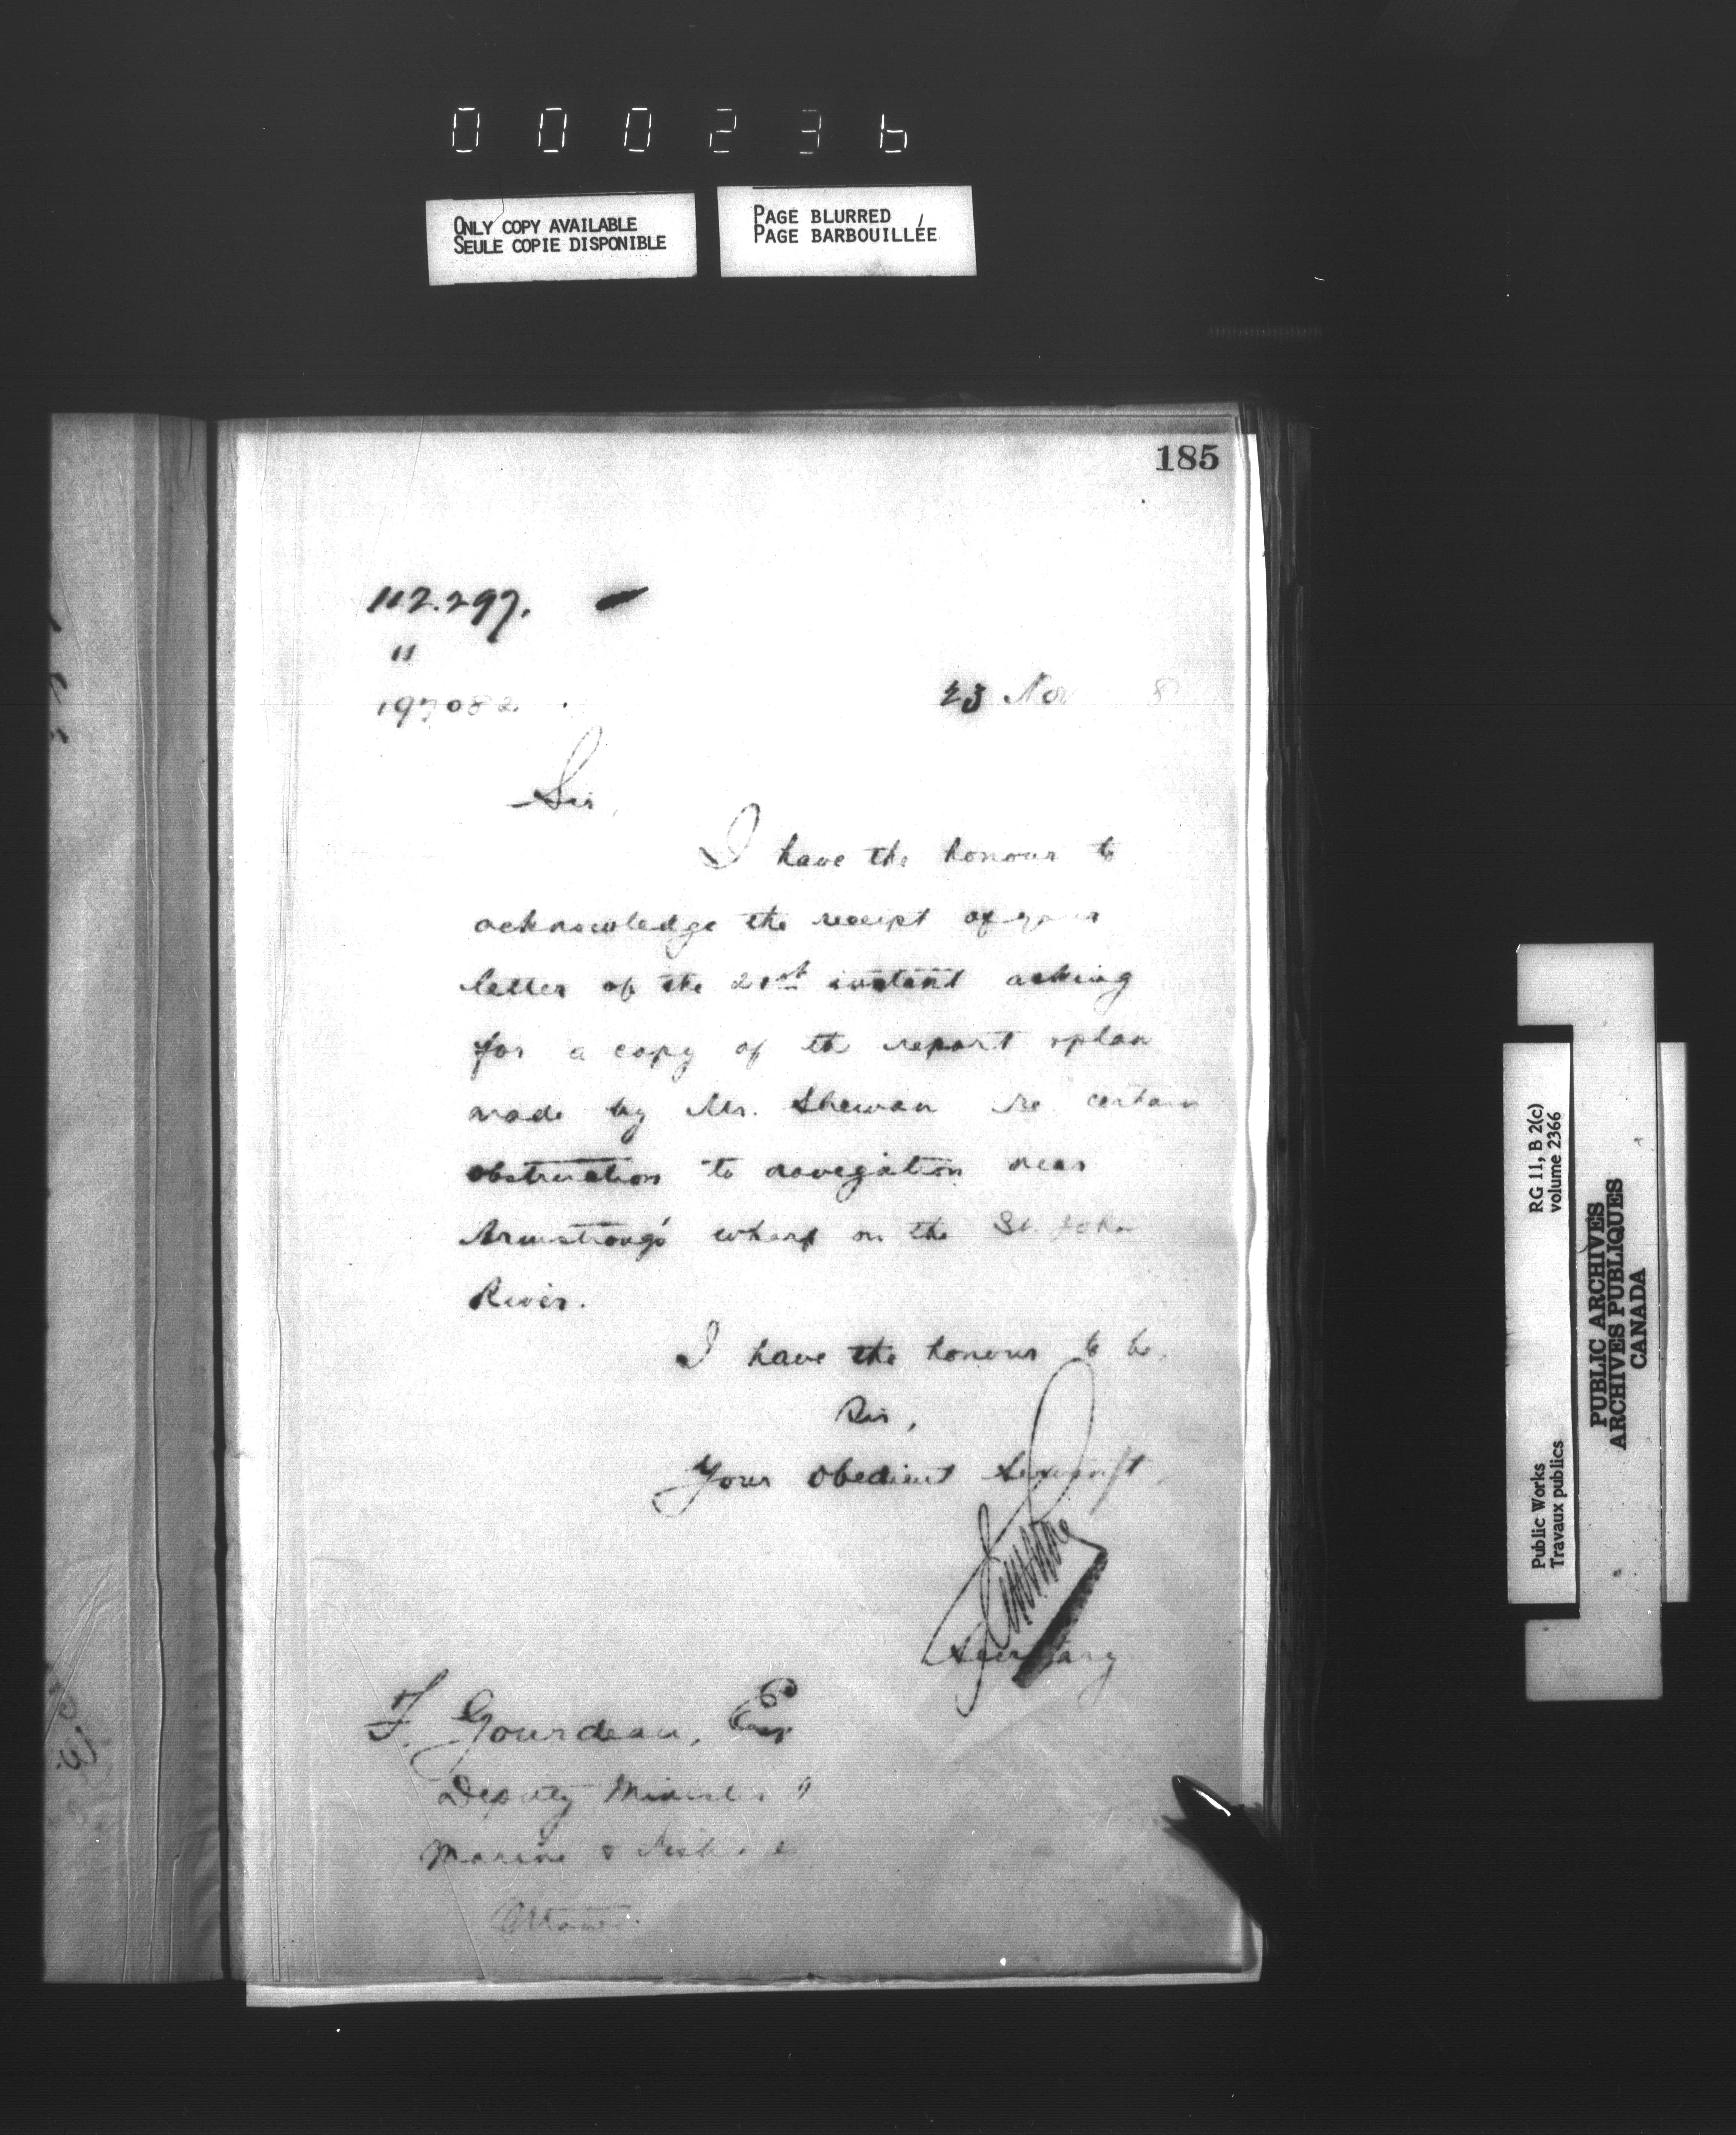 000236
ONLY COPY AVAILABLE
SEULE COPIE DISPONIBLE
PAGE BLURRED
PAGE BARBOUILLÉE
185
112.297.
"
197082
23 Nov 8
Sir,
I have the honour to
acknowledge the receipt of your
letter of the 21st instant asking
for a copy of the report & plan
made by Mr. Shewan re certain
obstruction to navigation near
Armstrong's wharf on the St. John
River.
I have the honour to be,
Sir,
Your obedient servant,
Secretary
F. Gourdeau, Esq
Deputy Minister of
Marine & Fisheries
Ottawa.
RG 11, B 2(c)
volume 2366
Public Works
Travaux publics
PUBLIC ARCHIVES
ARCHIVES PUBLIQUES
CANADA